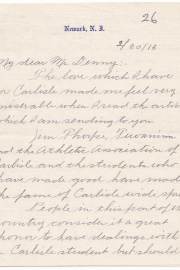 26
Newark, N. J.
2/20/18
My dear Mr. Denny:
The love which I have
for Carlisle made me feel very
miserable when I read the article
which I am sending to you.
Jim Thorpe, Tewanima
and the Athletic Association of
Carlisle and the students who
have made good have made
the fame of Carlisle wide spread
People in this part of the
country consider it a great
honor to have dealings with
a Carlisle student but should